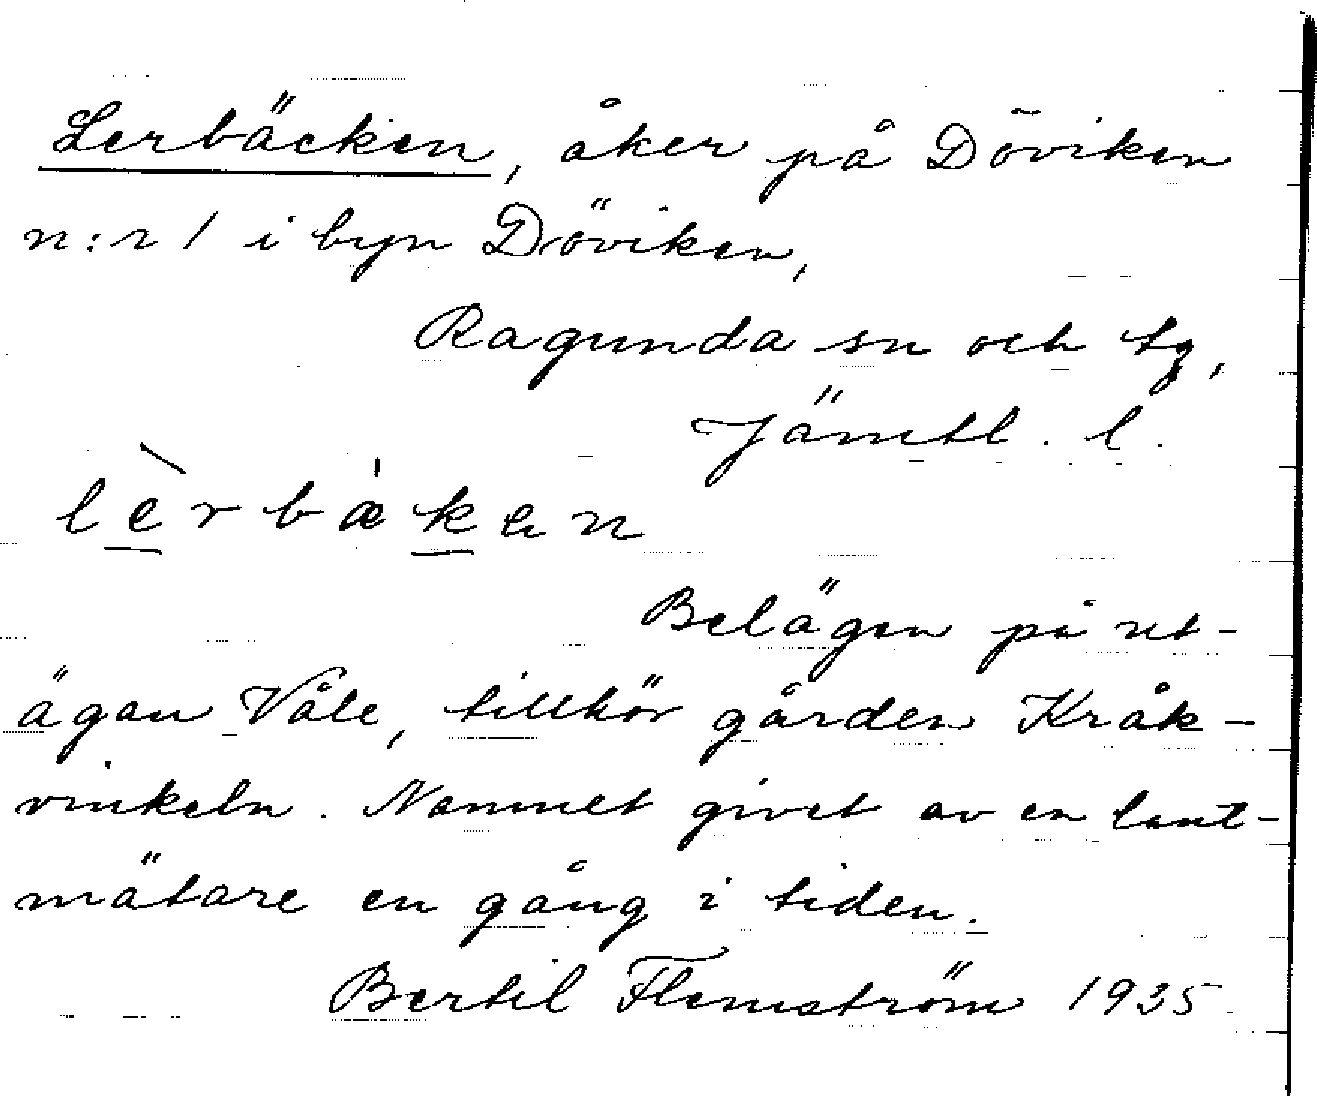 Lerbäcken, åker på Döviken
n:r 1 i byn Döviken,
Ragunda sn och tg,
Jämtl. l.
lèrbæken
Belägen på ut-
ägan Våle, tillhör gården Kråk-
vinkeln. Namnet givet av en lant-
mätare en gång i tiden.
Bertil Flemström 1935